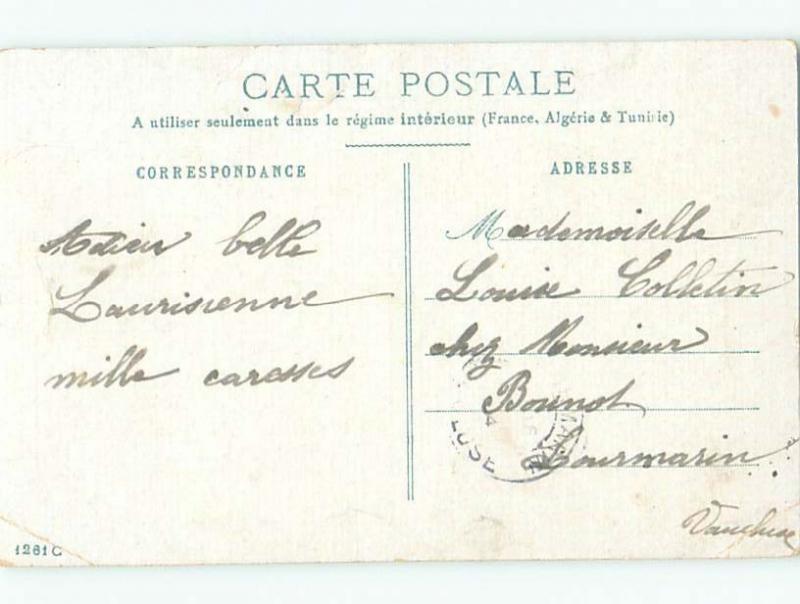 CARTE POSTALE
A utiliser seulement dans le régime intérieur (France, Algérie & Tunisie)
CORRESPONDANCE
Adieu belle
Laurisienne
mille caresses
ADRESSE
Mademoiselle
Louise Colletin
chez Monsieur
Bounot
Lourmarin
Vaucluse
LUSE
1261 C